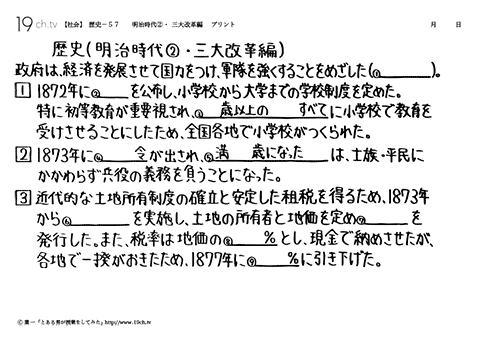 19ch.tv 【社会】 歴史－57 明治時代②・三大改革編 プリント 月 日
歴史(明治時代②・三大改革編)
政府は、経済を発展させて国力をつけ、軍隊を強くすることをめざした(⓪________)。
1 1872年に①____を公布し、小学校から大学までの学校制度を定めた。
特に初等教育が重要視され、② 歳以上の すべてに小学校で教育を
受けさせることにしたため、全国各地で小学校がつくられた。
2 1873年に③____令が出され、④満 歳になった____は、士族・平民に
かかわらず兵役の義務を負うことになった。
3 近代的な土地所有制度の確立と安定した租税を得るため、1873年
から⑤________を実施し、土地の所有者と地価を定め⑥____を
発行した。また、税率は地価の⑦____%とし、現金で納めさせたが、
各地で一揆がおきたため、1877年に⑧____%に引き下げた。
© 葉一「とある男が授業をしてみた」http://www.19ch.tv